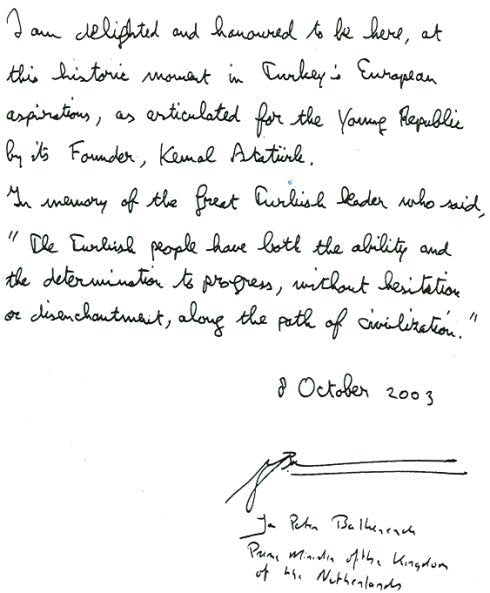 I am delighted and honoured to be here, at
this historic moment in Turkey's European
aspirations, as articulated for the Young Republic
by its Founder, Kemal Atatürk.
In memory of the great Turkish leader who said,
" The Turkish people have both the ability and
the determination to progress, without hesitation
or disenchantment, along the path of civilization."
8 October 2003
Jan Peter Balkenende
Prime Minister of the Kingdom
of the Netherlands